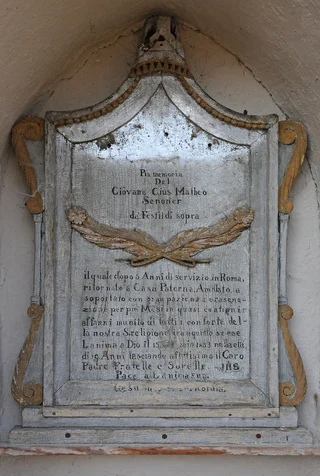 Pia memoria
Del
Giovane Cius Matheo
Senoner
da Festil di sopra
il quale dopo 6 Anni di servizio in Roma,
ritornato a Casa Paterna, Amalato, a
soportato con gran pazienza e rasegna-
zione per più Mesi in quasi continui
affanni munito di tutti i conforti del-
la nostra S. religione tranquillo e rese
L'anima a Dio il
di 19 Anni lasciando afflitissimo il Caro
Padre Fratelle e Sorelle. IHS
Pace a L'anima sua.